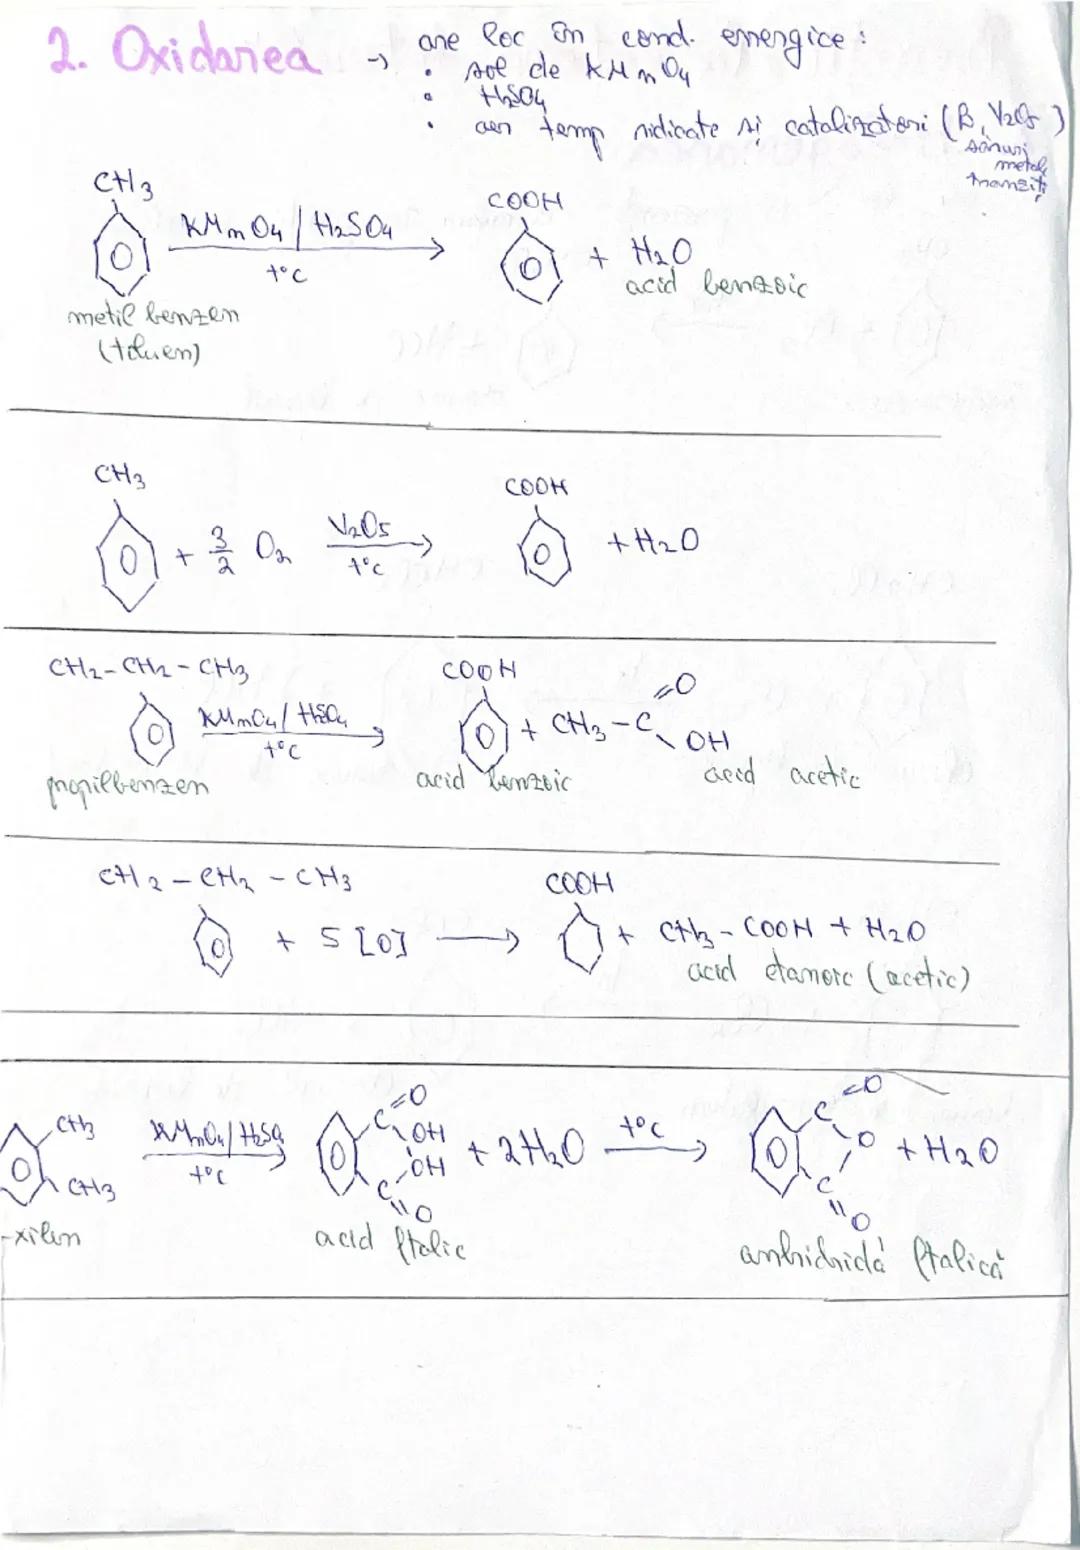 2. Oxidarea → are loc în cond. energice:
• sol de KMnO4
• H2SO4
• aer temp ridicate și catalizatori (B, V2O5)
săruri
metale
tranziți
CH3
KMnO4 / H2SO4
t°C
COOH
+ H2O
acid benzoic
metil benzen
(toluen)
CH3
+ 3/2 O2
V2O5
t°C
COOH
+ H2O
CH2 - CH2 - CH3
KMnO4 / H2SO4
t°C
COOH
+ CH3 - C
=O
OH
propilbenzen
acid benzoic
acid acetic
CH2 - CH2 - CH3
+ 5 [O] →
COOH
+ CH3 - COOH + H2O
acid etanoic (acetic)
CH3
CH3
KMnO4 / H2SO4
t°C
C =O
OH
OH
C =O
+ 2H2O
t°C
C =O
O
C =O
+ H2O
-xilen
acid ftalic
anhidridă ftalică